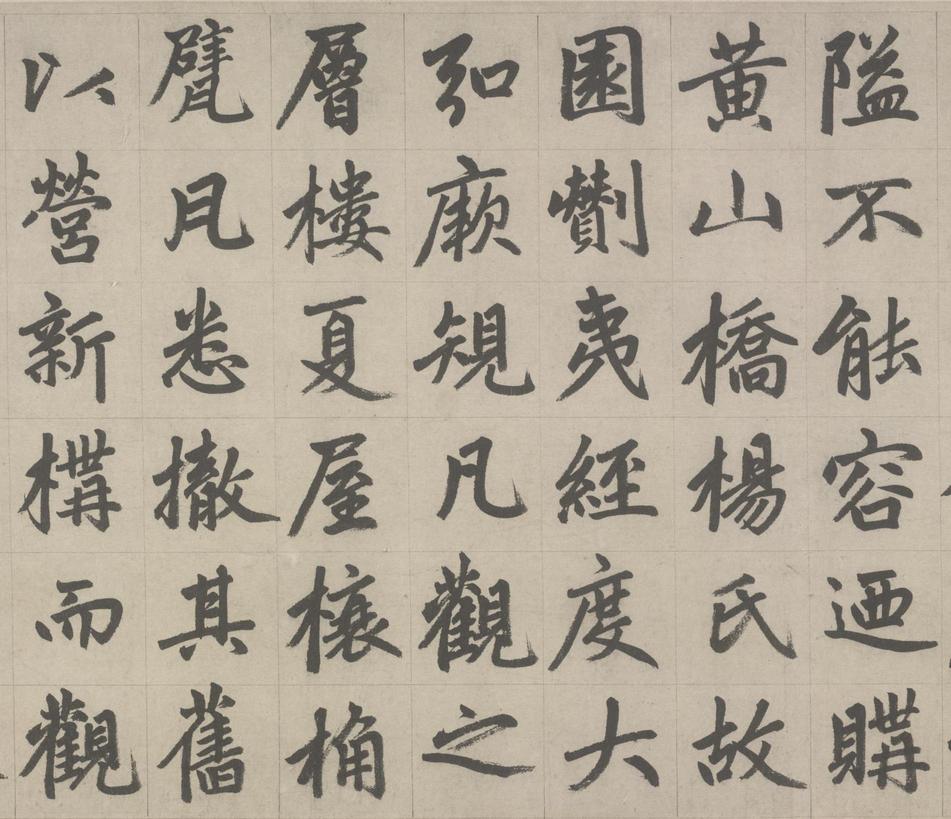 隘不能容迺購
黃山橋楊氏故
園劗夷經度大
弘厥規凡觀之
層樓夏屋榱桷
甓瓦悉撤其舊
以營新構而觀